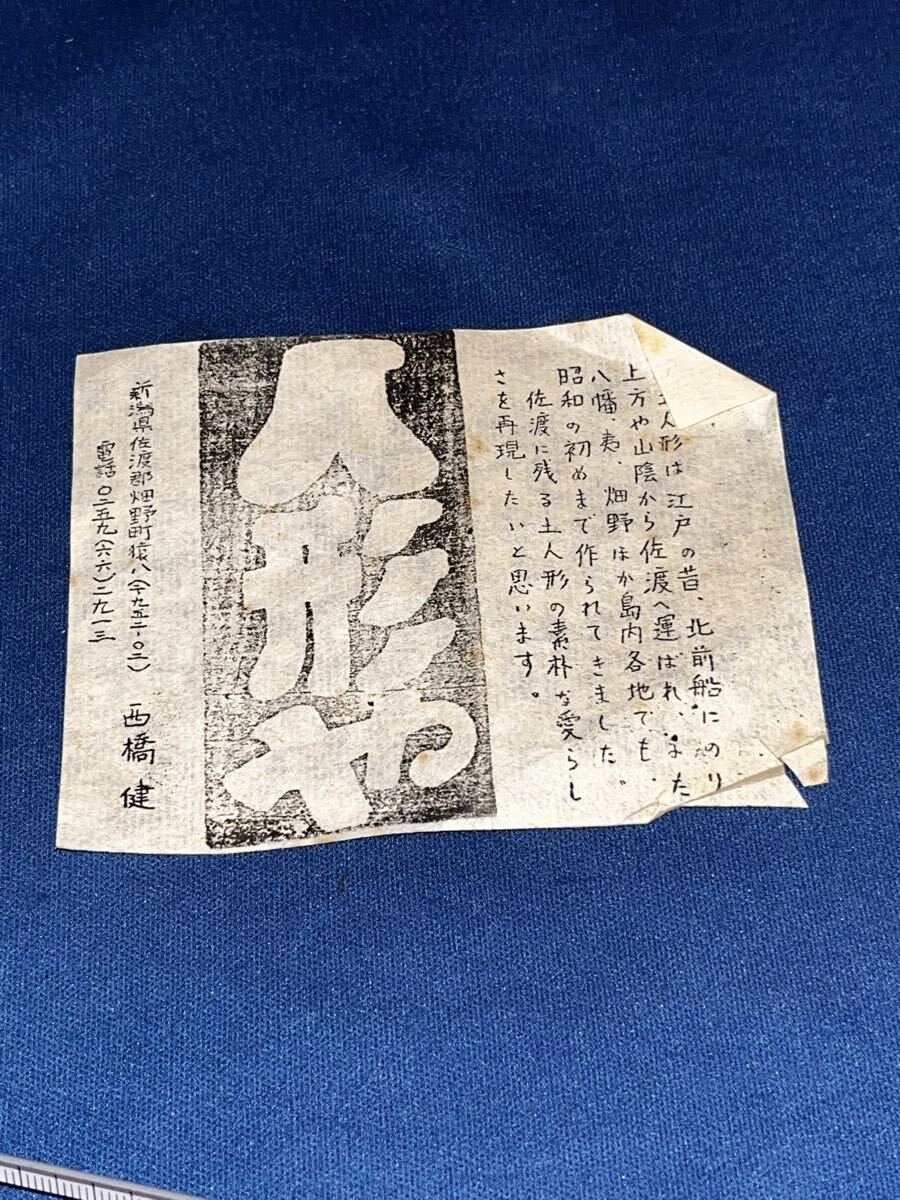 人形は江戸の昔、北前船にのり
上方や山陰から佐渡へ運ばれ、また
八幡、夷、畑野ほか島内各地でも、
昭和の初めまで作られてきました。
佐渡に残る土人形の素朴な愛らし
さを再現したいと思います。
人形や
新潟県佐渡郡畑野町猿八(〒九五二-〇二)
西橋健
電話〇二五九(六六)二九一三